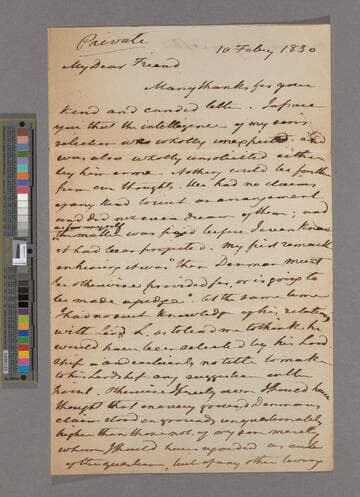 Private
10 Feby 1830
My Dear Friend
Many thanks for your
kind and candid letter. I assure
you that the intelligence of my son's
selection was wholly unexpected and
was also wholly unsolicited either
by him or me. Nothing could be further
from our thoughts. We had no claims
of any kind to such an arrangement
and did not even dream of them; and
the matter was fixed before I even knew
it had been projected. My first remark
on hearing it was "then Denman must
be otherwise provided for, or is going to
be made a judge." At the same time
I had no such knowledge of his relations
with Lord L. as to lead me to think he
would have been selected by his Lord
ship — and certainly not to make
to his Lordship any suggestion on the
point. Otherwise I freely own I should have
thought that on every ground Denman's
claim stood on grounds unquestionably
higher than those not of my son merely
whom I should have regarded as out
of the question, but of any other lawyer